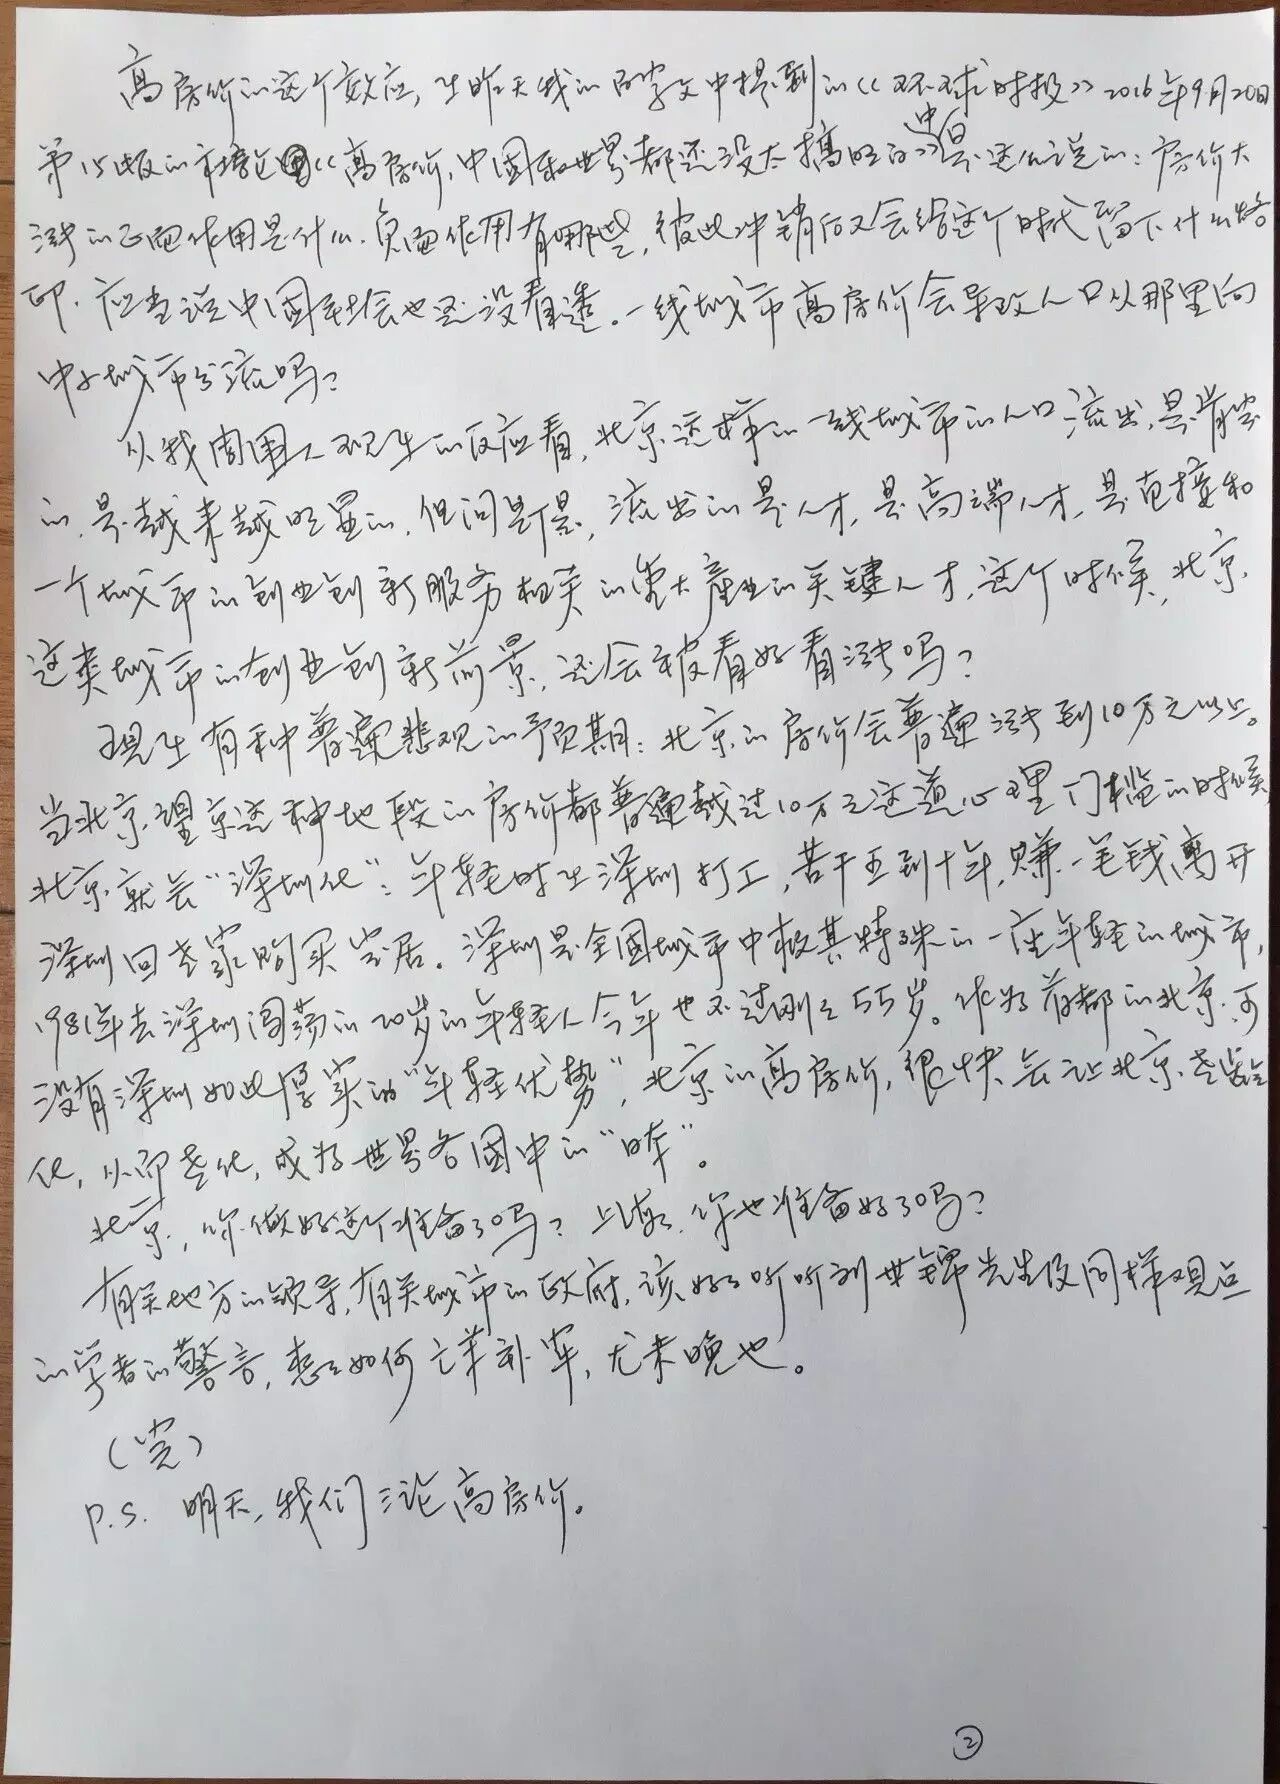 高房价的这个效应，在昨天我的习字文中提到的《环球时报》2016年9月20日
第15版的《高房价，中国和世界都还没太搞明白》中是这么说的：房价大
涨的正面作用是什么，负面作用有哪些，彼此冲销后又会给这个时代留下什么烙
印，应当说中国社会也还没看透。一线城市高房价会导致人口从那里向
中小城市分流吗？
从我周围人现在的反应看，北京这样的一线城市的人口流出，是肯定
的，是越来越明显的，但问题是，流出的是人才，是高端人才，是直接和
一个城市的创业创新服务相关的重大产业的关键人才，这个时候，北京
这类城市的创业创新前景，还会被看好看涨吗？
现在有种普遍悲观的预期：北京的房价会普遍涨到10万元以上。
当北京望京这种地段的房价都普遍越过10万元这道心理门槛的时候，
北京就会“深圳化”：年轻时在深圳打工，苦干五到十年，赚一笔钱离开
深圳回老家购买定居。深圳是全国城市中极其特殊的一座年轻的城市，
1981年去深圳闯荡的20岁的年轻人今年也不过刚刚55岁。作为首都的北京，可
没有深圳如此厚实的“年轻优势”，北京的高房价，很快会让北京老龄
化，从而老化，成为世界各国中的“日本”。
北京，你做好这个准备了吗？上海，你也准备好了吗？
有关地方的领导，有关城市的政府，该好好听听刘世锦先生及同样观点
的学者的警言，想想如何亡羊补牢，尤未晚也。
（完）
P.S. 明天，我们三论高房价。
②